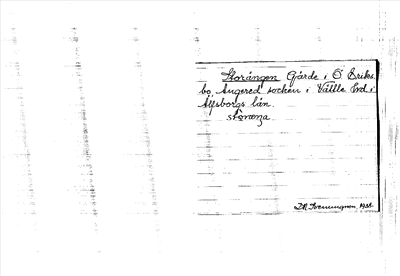 Storängen Gärde i Ö Eriks
bo Angered socken i Vättle hd i
Älfsborgs län.
storæŋa
1938